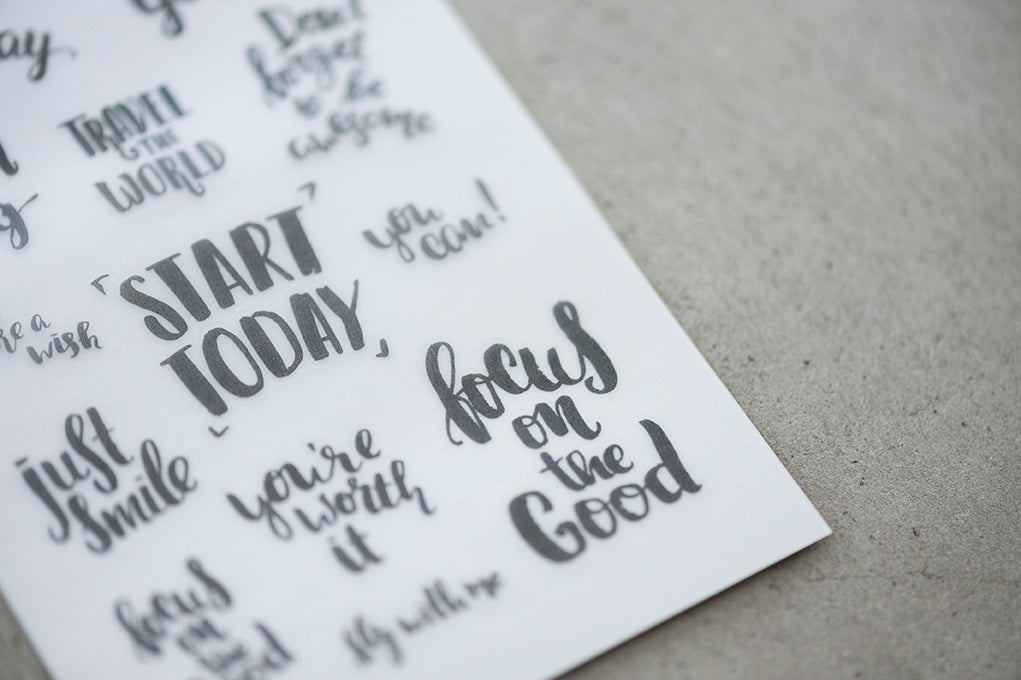 Don't
forget
to be
awesome
TRAVEL
THE
WORLD
you
can!
START
TODAY
a
wish
focus
on
the
Good
just
smile
you're
worth
it
focus
on
the
fly with me